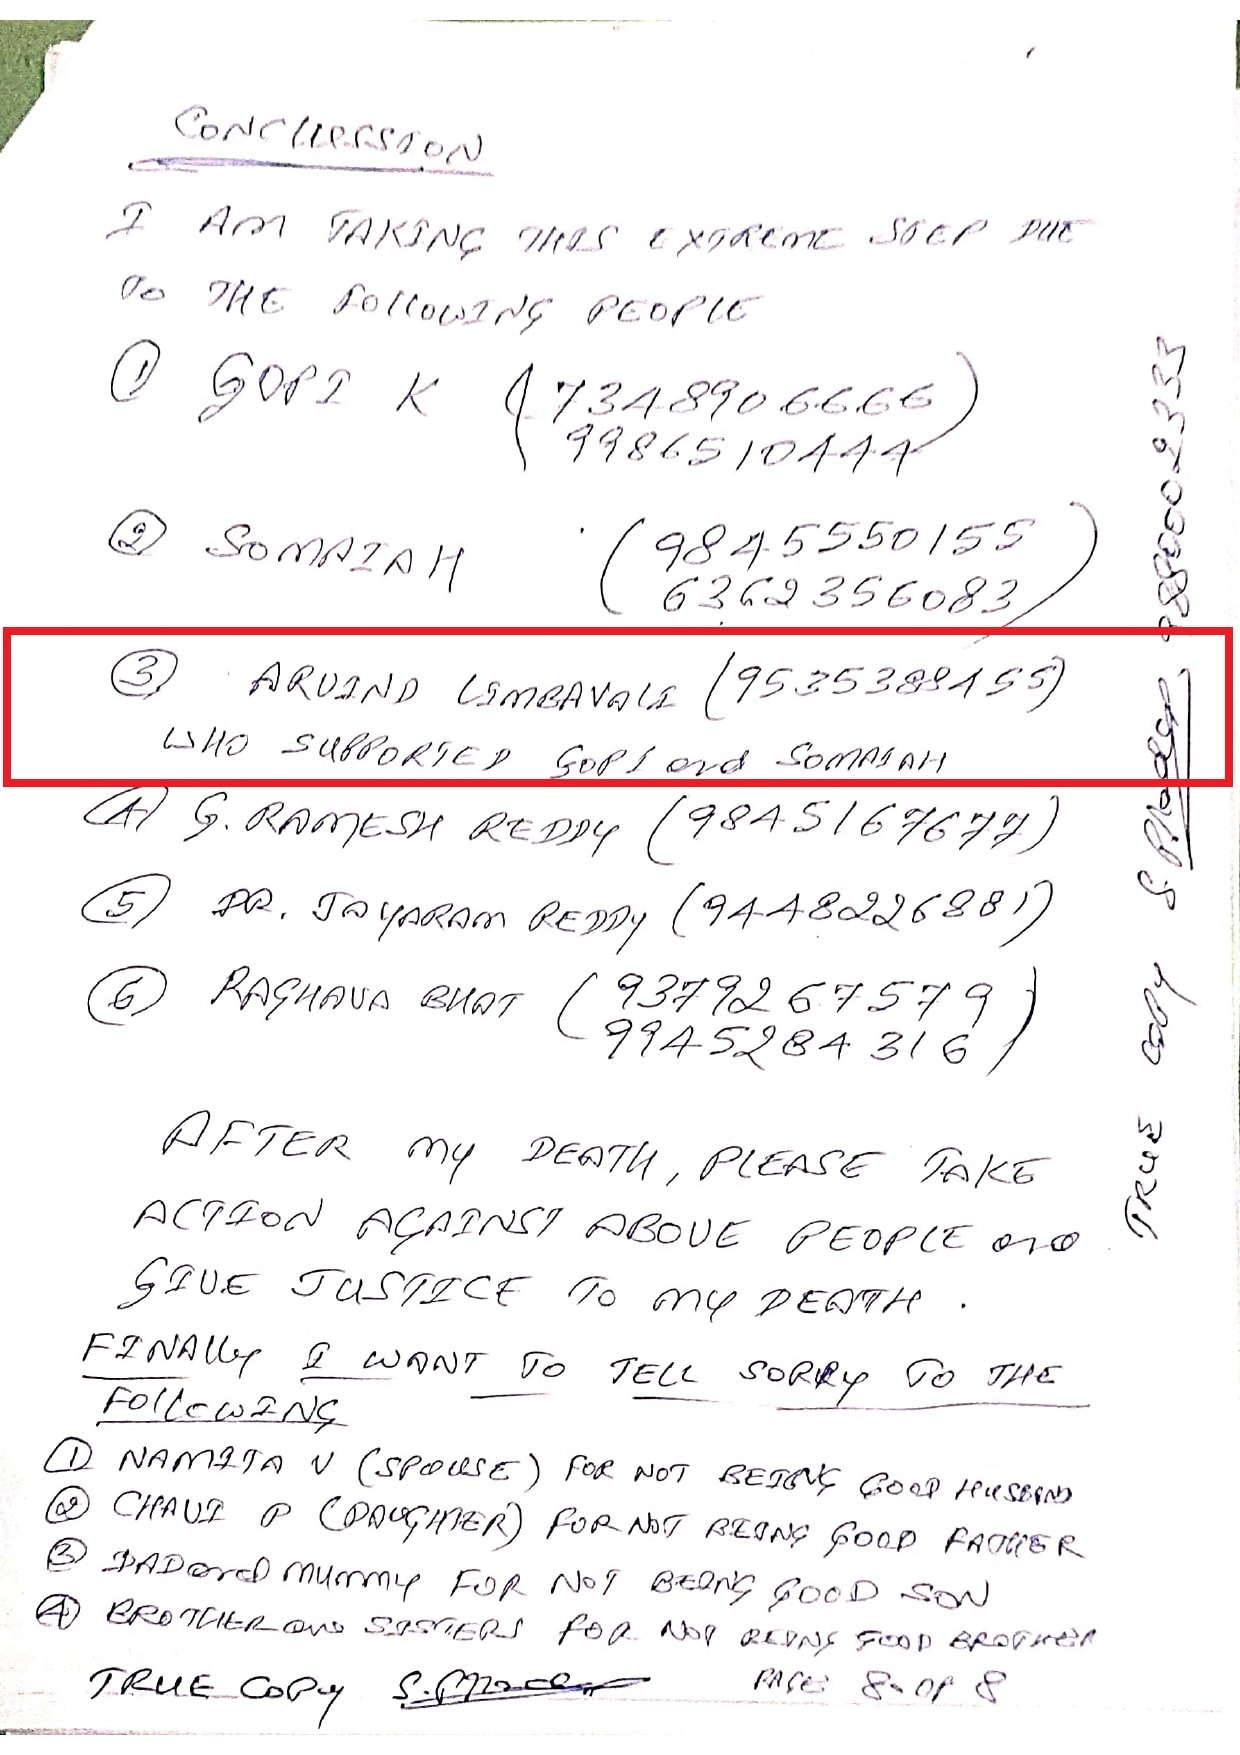 CONCLUSSION
I AM TAKING THIS EXTREME STEP DUE
TO THE FOLLOWING PEOPLE
① GOPI K (7348906666
9986510444)
② SOMAIAH (9845550155
6362356083)
③ ARVIND LIMBAVALI (9535389455)
WHO SUPPORTED GOPI and SOMAIAH
④ G. RAMESH REDDY (9845167677)
⑤ DR. JAYARAM REDDY (9448226881)
⑥ RAGHAVA BHAT (9379267579
9945284316)
AFTER MY DEATH, PLEASE TAKE
ACTION AGAINST ABOVE PEOPLE and
GIVE JUSTICE TO MY DEATH.
FINALLY I WANT TO TELL SORRY TO THE
FOLLOWING
① NAMITA V (SPOUSE) FOR NOT BEING GOOD HUSBAND
② CHAVI P (DAUGHTER) FOR NOT BEING GOOD FATHER
③ DAD and MUMMY FOR NOT BEING GOOD SON
④ BROTHER and SISTERS FOR NOT BEING GOOD BROTHER
TRUE COPY PAGE: 8 OF 8
TRUE COPY